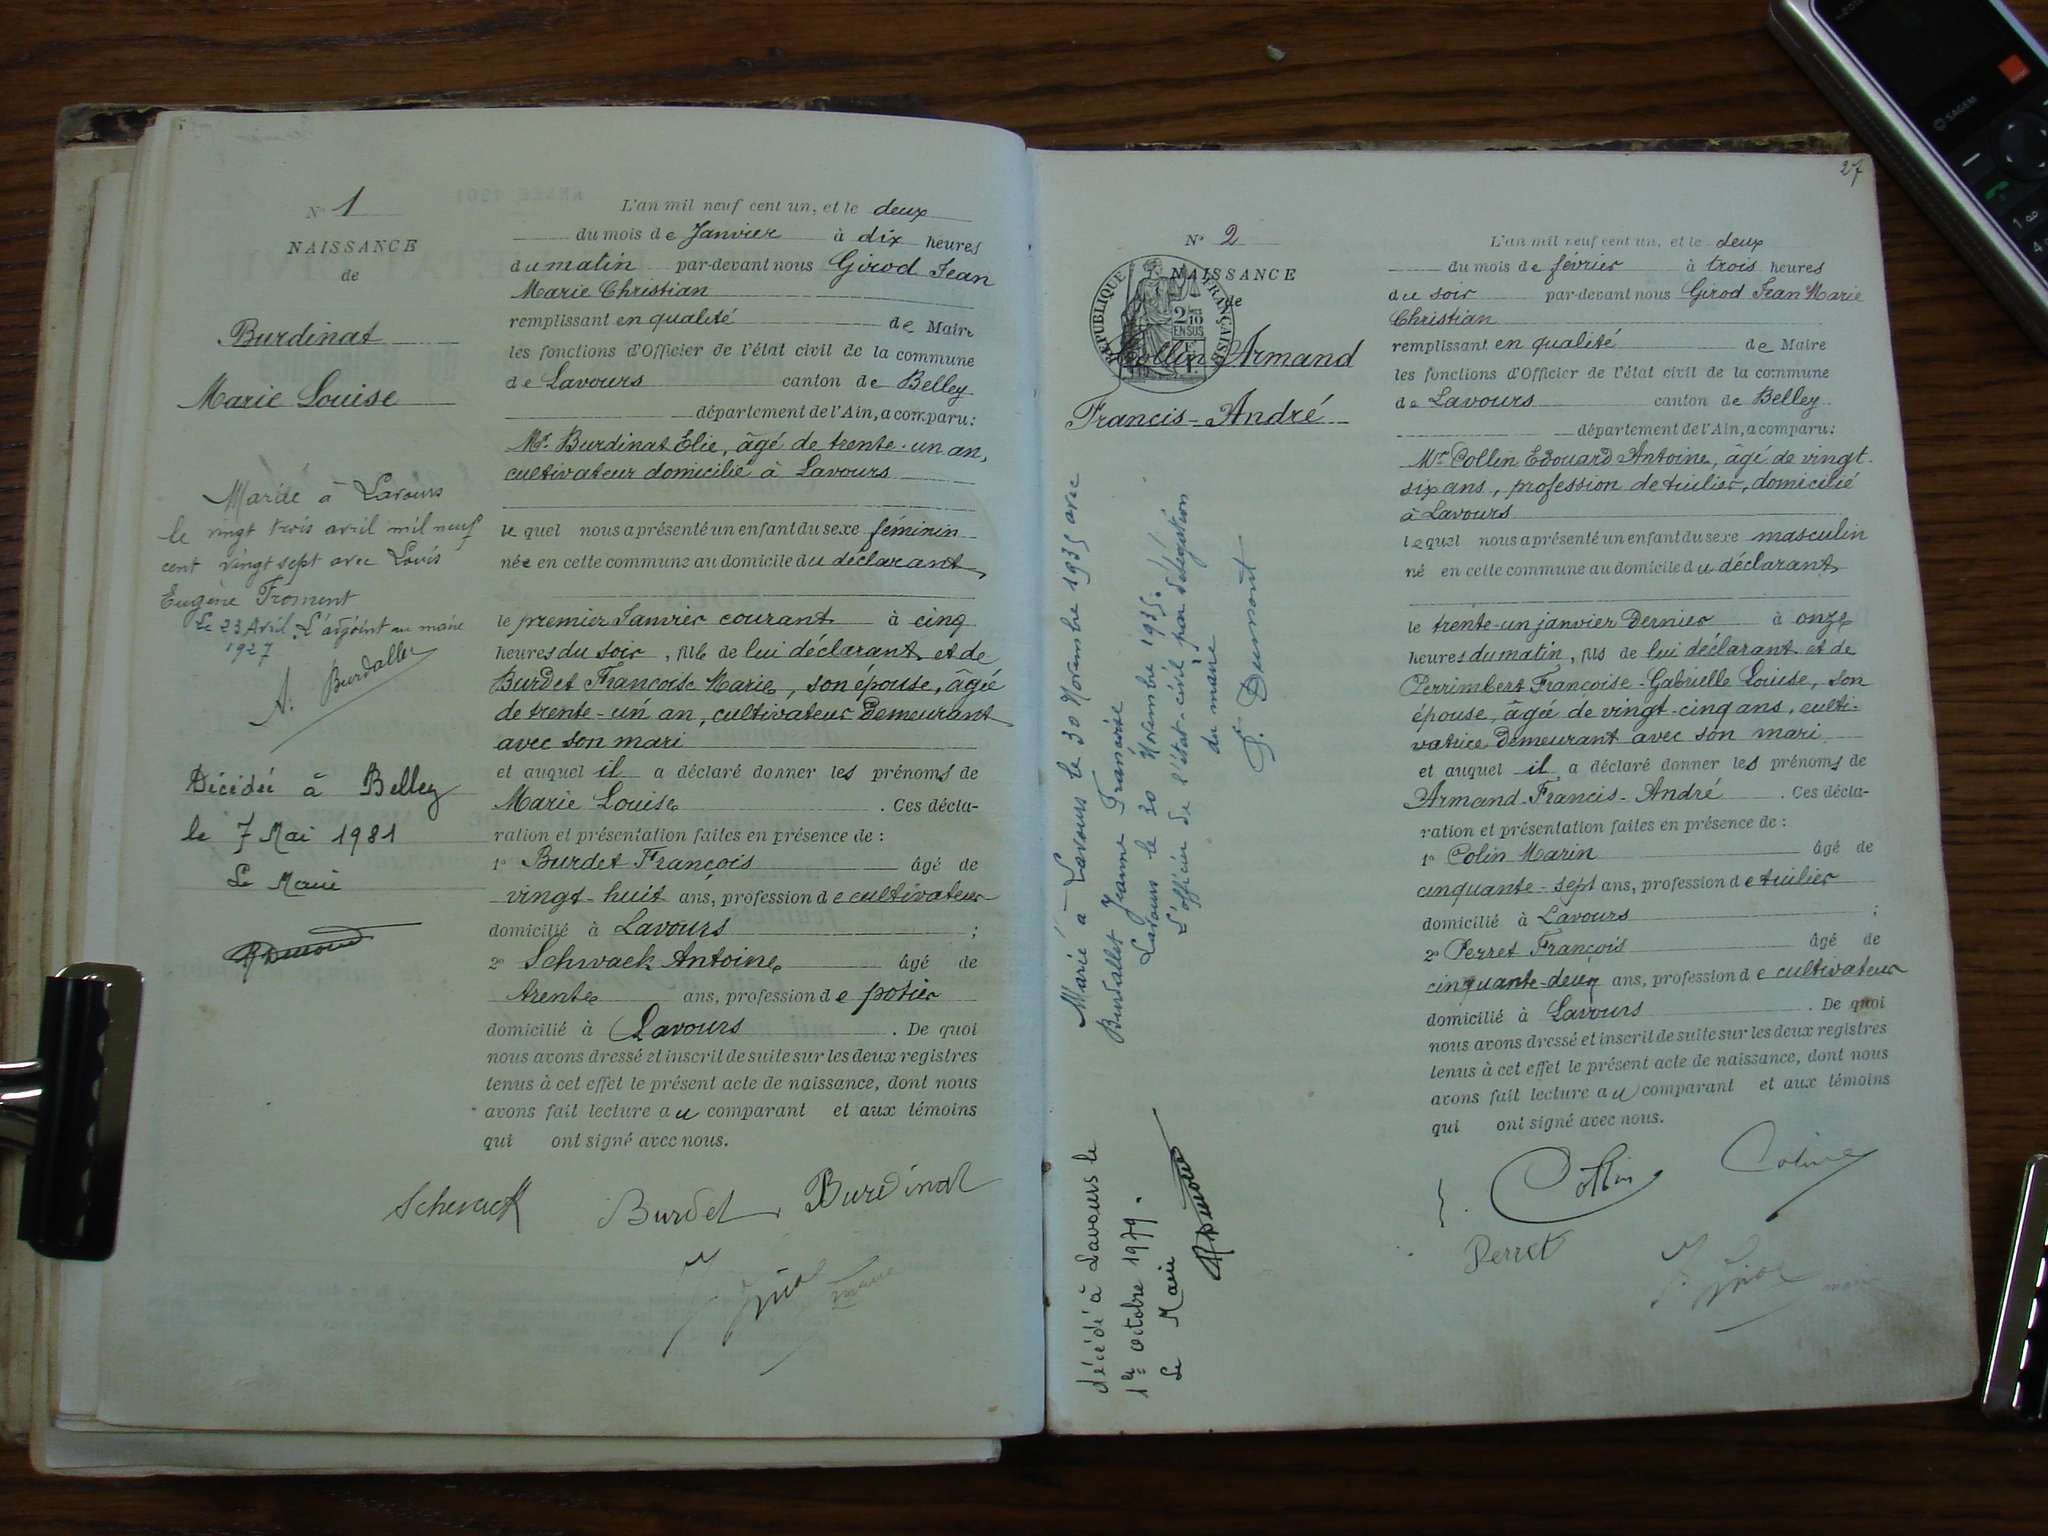 N° 1
NAISSANCE
de
Burdinat
Marie Louise
Mariée à Lavours
le vingt trois avril mil neuf
cent vingt sept avec Louis
Eugène Froment
Le 23 Avril L'adjoint au maire
1927
A. Burdallet
Décédée à Belley
le 7 Mai 1981
Le Maire
L'an mil neuf cent un, et le deux
du mois de Janvier à dix heures
du matin par-devant nous Girod Jean
Marie Christian
remplissant en qualité de Maire
les fonctions d'Officier de l'état civil de la commune
de Lavours canton de Belley
département de l'Ain, a comparu:
Mr. Burdinat Elie, âgé de trente-un an,
cultivateur domicilié à Lavours
lequel nous a présenté un enfant du sexe féminin
née en cette commune au domicile du déclarant,
le premier Janvier courant à cinq
heures du soir, fille de lui déclarant et de
Burdet Françoise Marie, son épouse, agée
de trente-un an, cultivateur demeurant
avec son mari
et auquel il a déclaré donner les prénoms de
Marie Louise . Ces décla-
ration et présentation faites en présence de :
1° Burdet François âgé de
vingt-huit ans, profession de cultivateur
domicilié à Lavours ;
2° Schwack Antoine âgé de
trente ans, profession de potier
domicilié à Lavours . De quoi
nous avons dressé et inscrit de suite sur les deux registres
tenus à cet effet le présent acte de naissance, dont nous
avons fait lecture au comparant et aux témoins
qui ont signé avec nous.
Schwack Burdet Burdinat
27
N° 2
NAISSANCE
de
RÉPUBLIQUE FRANÇAISE
2/10
EN SUS
Collin Armand
Francis-André
Marié à Lavours le 30 Novembre 1935 avec
Burdallet Jeanne Françoise
Lavours le 30 Novembre 1935.
L'officier de l'état-civil par délégation
du maire
J. Dumont
décédé à Lavours le
1er octobre 1979.
Le Maire
L'an mil neuf cent un, et le deux
du mois de février à trois heures
du soir par-devant nous Girod Jean Marie
Christian
remplissant en qualité de Maire
les fonctions d'Officier de l'état civil de la commune
de Lavours canton de Belley
département de l'Ain, a comparu:
Mr Collin Edouard Antoine, âgé de vingt-
six ans, profession de tuilier, domicilié
à Lavours
lequel nous a présenté un enfant du sexe masculin
né en cette commune au domicile du déclarant,
le trente-un janvier dernier à onze
heures du matin, fils de lui déclarant et de
Perrimbert Françoise-Gabrielle Louise, son
épouse, âgée de vingt-cinq ans, culti-
vatrice demeurant avec son mari
et auquel il a déclaré donner les prénoms de
Armand-Francis-André . Ces décla-
ration et présentation faites en présence de :
1° Colin Marin âgé de
cinquante-sept ans, profession de tuilier
domicilié à Lavours ;
2° Perret François âgé de
cinquante-deux ans, profession de cultivateur
domicilié à Lavours . De quoi
nous avons dressé et inscrit de suite sur les deux registres
tenus à cet effet le présent acte de naissance, dont nous
avons fait lecture au comparant et aux témoins
qui ont signé avec nous.
Collin
Perret
SAGEM